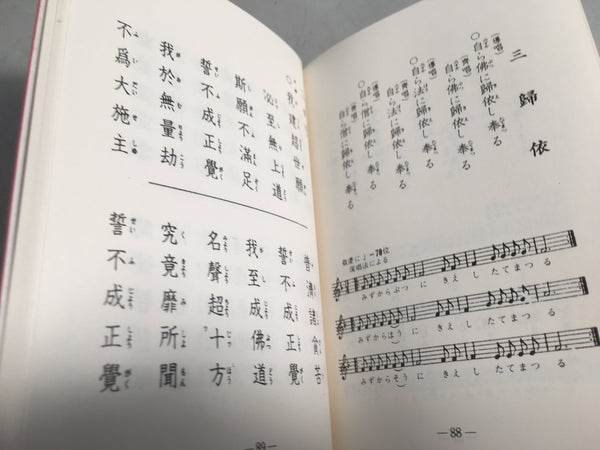 三歸依
(導唱)
○自ら佛に歸依し奉る
(齊唱)
自ら佛に歸依し奉る
(導唱)
○自ら法に歸依し奉る
(齊唱)
自ら法に歸依し奉る
(導唱)
○自ら僧に歸依し奉る
(齊唱)
自ら僧に歸依し奉る
敬虔に♩=70位
復唱法による
みずからぶつ に きえ し たてまつ る
みずからほう に きえ し たてまつ る
みずからそう に きえ し たてまつ る
—88—
○我建超世願
必至無上道
斯願不滿足
誓不成正覺
我於無量劫
不爲大施主
普濟諸貧苦
誓不成正覺
我至成佛道
名聲超十方
究竟靡所聞
誓不成正覺
—89—